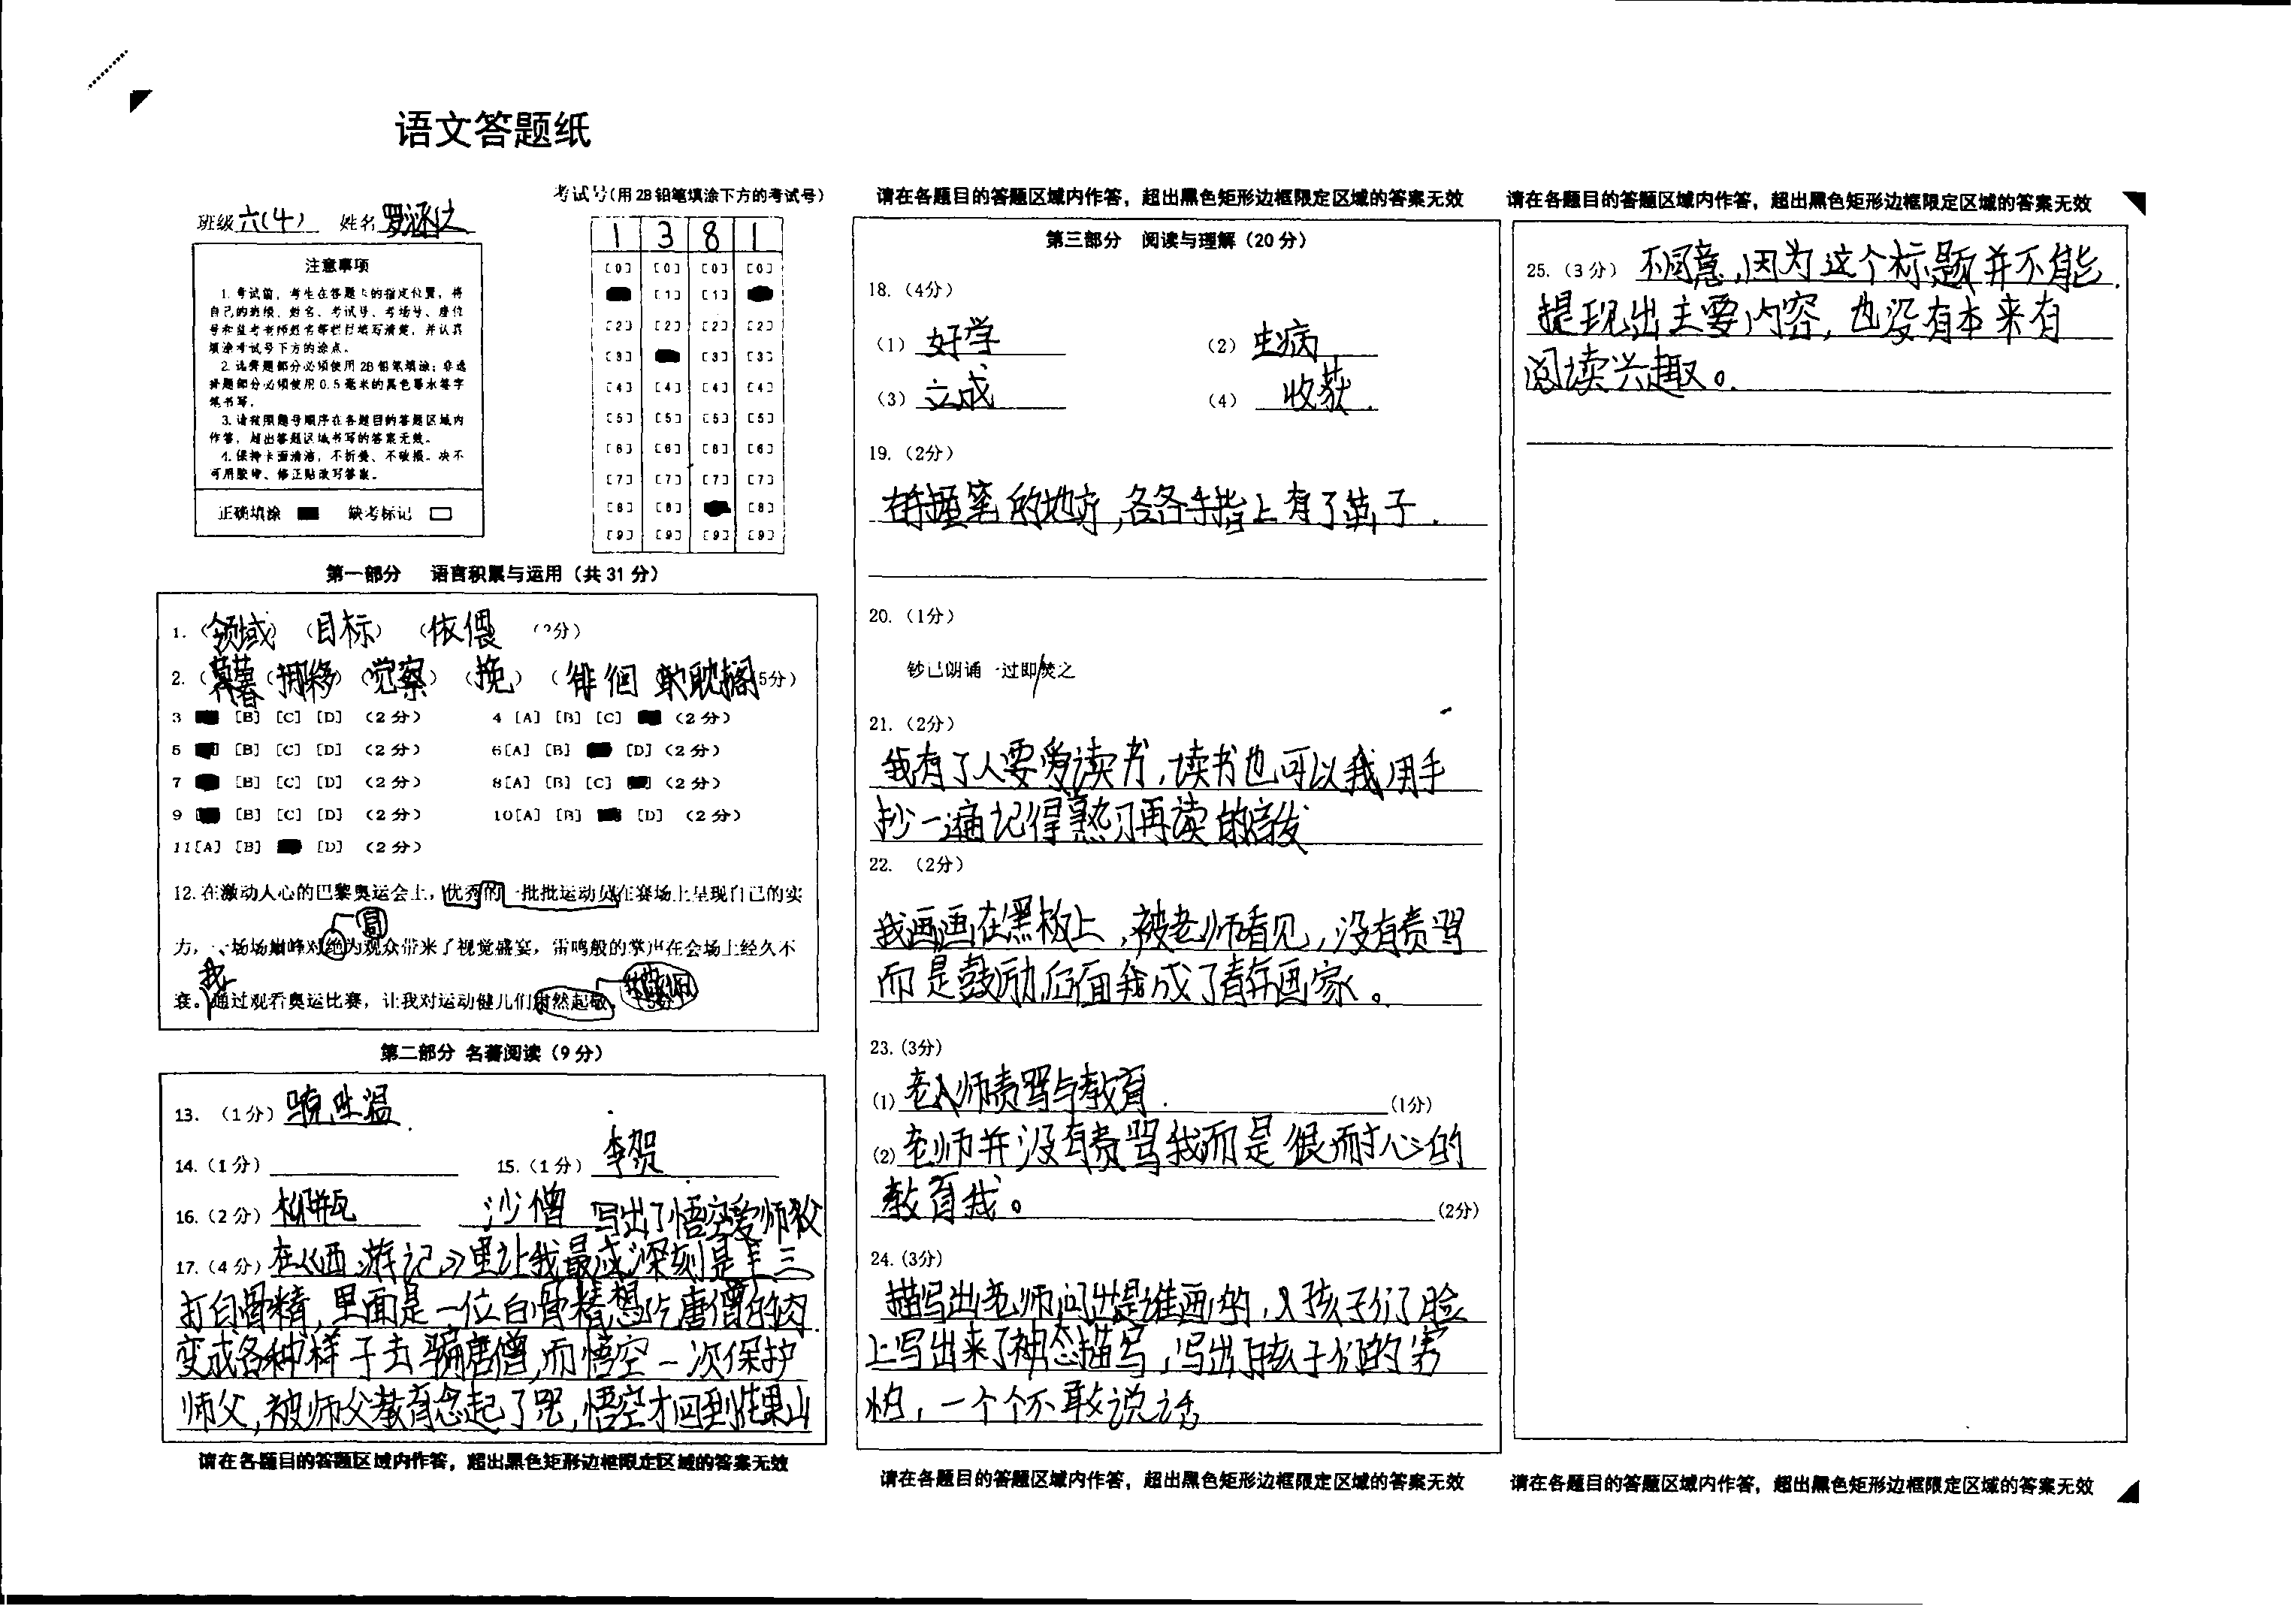 语文答题纸
班级 六(4) 姓名
考试号(用2B铅笔填涂下方的考试号)
1 3 8 1
[0] [0] [0] [0]
[1] [1]
[2] [2] [2] [2]
[3] [3] [3]
[4] [4] [4] [4]
[5] [5] [5] [5]
[6] [6] [6] [6]
[7] [7] [7] [7]
[8] [8] [8]
[9] [9] [9] [9]
注意事项
1.考试前,考生在答题卡的指定位置,将
自己的班级、姓名、考试号、考场号、座位
号和监考老师姓名等栏目填写清楚,并认真
填涂考试号下方的涂点。
2.选择题部分必须使用2B铅笔填涂;非选
择题部分必须使用0.5毫米的黑色墨水签字
笔书写。
3.请按照题号顺序在各题目的答题区域内
作答,超出答题区域书写的答案无效。
4.保持卡面清洁,不折叠、不破损。决不
可用胶带、修正贴改写答案。
正确填涂 缺考标记
第一部分 语言积累与运用(共31分)
1.(领域)(目标)(依偎
2.( (挪移)(觉察)(挽)(徘徊 耽搁 5分)
3 [B] [C] [D] (2分) 4 [A] [B] [C] (2分)
5 [B] [C] [D] (2分) 6[A] [B] [D] (2分)
7 [B] [C] [D] (2分) 8[A] [B] [C] (2分)
9 [B] [C] [D] (2分) 10[A] [B] [D] (2分)
11[A] [B] [D] (2分)
12.在激动人心的巴黎奥运会上,优秀的一批批运动员在赛场上呈现自己的实
力,一场场巅峰对绝为观众带来了视觉盛宴,雷鸣般的掌声在会场上经久不
我
衰。通过观看奥运比赛,让我对运动健儿们肃然起敬。
第二部分 名著阅读(9分)
13.(1分)
14.(1分) 15.(1分) 李贺
16.(2分) 沙僧 写出了悟空爱师父
17.(4分) 在《西游记》里让我最感深刻是 三
打白骨精,里面是一位白骨精想吃唐僧的肉
变成各种样子去骗唐僧,而悟空一次保护
师父,被师父教育念起了咒,悟空才回到花果山
请在各题目的答题区域内作答,超出黑色矩形边框限定区域的答案无效
请在各题目的答题区域内作答,超出黑色矩形边框限定区域的答案无效
第三部分 阅读与理解(20分)
18.(4分)
(1) 好学 (2) 生病
(3) 立成 (4) 收获.
19.(2分)
在握笔的地方,各各手指上有了茧子.
20.(1分)
钞已朗诵一过即/焚之
21.(2分)
我有了人要爱读书,读书也可以我用手
抄一遍记得熟习再读的启发
22.(2分)
我画画在黑板上,被老师看见,没有责骂
而是鼓励,后面我成了青年画家。
23.(3分)
(1) 老师责骂与教育. (1分)
(2) 老师并没有责骂我而是很耐心的
教育我。 (2分)
24.(3分)
描写出老师问出是谁画的,人孩子们了脸
上写出来了神态描写,写出了孩子们的害
怕,一个个不敢说话
请在各题目的答题区域内作答,超出黑色矩形边框限定区域的答案无效
请在各题目的答题区域内作答,超出黑色矩形边框限定区域的答案无效
25.(3分) 不同意,因为这个标题并不能
提现出主要内容,也没有本来有
阅读兴趣。
请在各题目的答题区域内作答,超出黑色矩形边框限定区域的答案无效